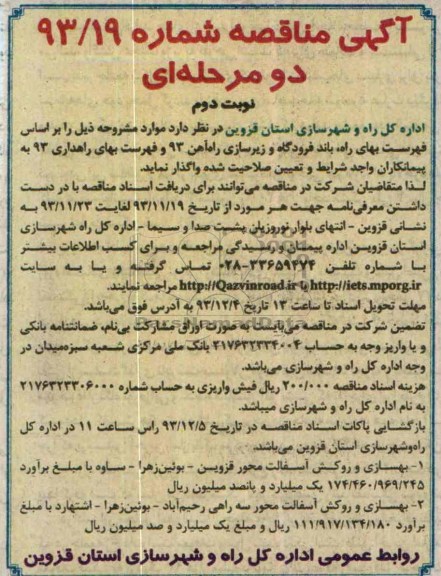 آگهی مناقصه شماره ۹۳/۱۹
دو مرحله‌ای
نوبت دوم
اداره کل راه و شهرسازی استان قزوین در نظر دارد موارد مشروحه ذیل را بر اساس
فهرست بهای راه، باند فرودگاه و زیرسازی راه‌آهن ۹۳ و فهرست بهای راهداری ۹۳ به
پیمانکاران واجد شرایط و تعیین صلاحیت شده واگذار نماید.
لذا متقاضیان شرکت در مناقصه می‌توانند برای دریافت اسناد مناقصه با در دست
داشتن معرفی‌نامه جهت هر مورد از تاریخ ۹۳/۱۱/۱۹ لغایت ۹۳/۱۱/۲۳ به
نشانی قزوین - انتهای بلوار نوروزیان پشت صدا و سیما - اداره کل راه شهرسازی
استان قزوین اداره پیمان و رسیدگی مراجعه و برای کسب اطلاعات بیشتر
با شماره تلفن ۳۳۶۵۹۴۷۴-۰۲۸ تماس گرفته و یا به سایت
http://iets.mporg.ir یا http://Qazvinroad.ir مراجعه نمایند.
مهلت تحویل اسناد تا ساعت ۱۳ تاریخ ۹۳/۱۲/۴ به آدرس فوق می‌باشد.
تضمین شرکت در مناقصه می‌بایست به صورت اوراق مشارکت بی‌نام، ضمانتنامه بانکی
و یا واریز وجه به حساب ۲۱۷۶۳۲۳۳۴۰۰۴ بانک ملی مرکزی شعبه سبزه‌میدان در
وجه اداره کل راه و شهرسازی می‌باشد.
هزینه اسناد مناقصه ۲۰۰/۰۰۰ ریال فیش واریزی به حساب شماره ۲۱۷۶۳۲۳۳۰۶۰۰۰
به نام اداره کل راه و شهرسازی میباشد.
بازگشایی پاکات اسناد مناقصه در تاریخ ۹۳/۱۲/۵ راس ساعت ۱۱ در اداره کل
راه‌وشهرسازی استان قزوین می‌باشد.
۱- بهسازی و روکش آسفالت محور قزویسن - بوئین‌زهرا - ساوه با مبلغ برآورد
۱۷۴/۴۶۰/۹۶۹/۲۴۵ یک میلیارد و پانصد میلیون ریال
۲- بهسازی و روکش آسفالت محور سه راهی رحیم‌آباد - بوئین‌زهرا - اشتهارد با مبلغ
برآورد ۱۱۱/۹۱۷/۱۳۴/۱۸۰ ریال و مبلغ یک میلیارد و صد میلیون ریال
روابط عمومی اداره کل راه و شهرسازی استان قزوین